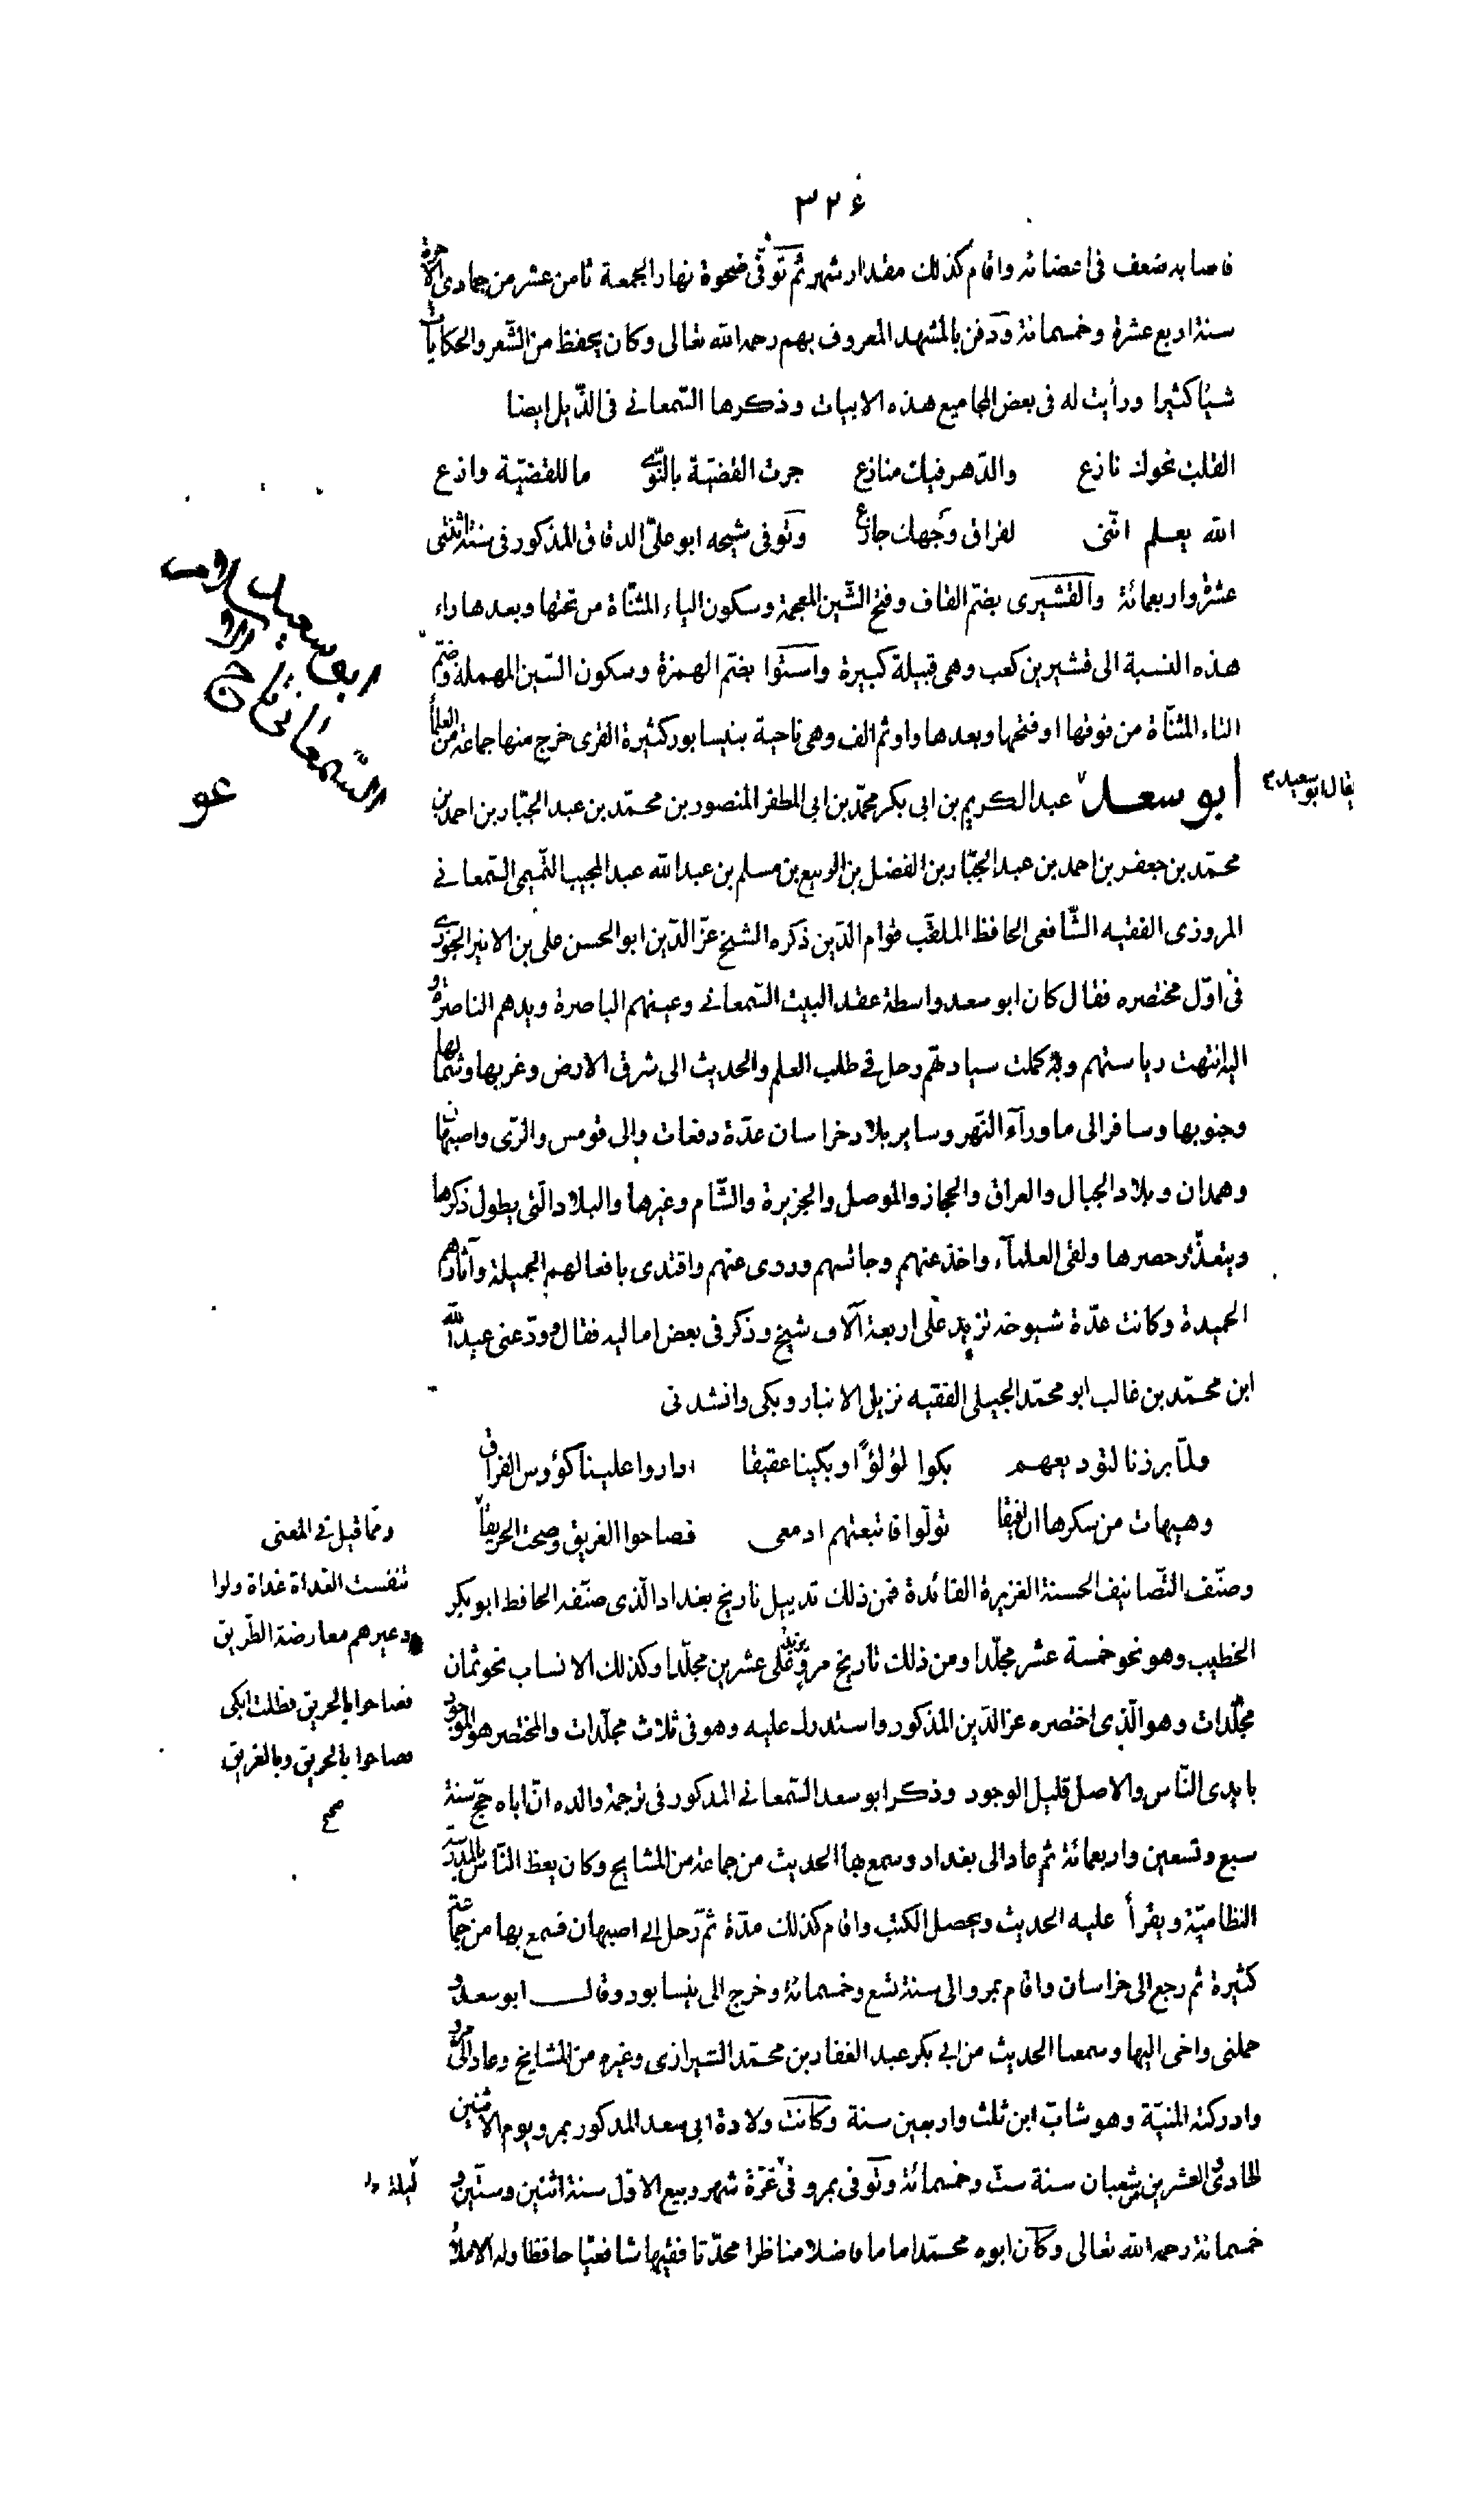 ٣٢٤
فاصابه ضعف فى اعضائه واقام كذلك مقدار شهر ثم توفى ضحوة نهار الجمعة ثامن عشر من جمادى الآخرة
سنة اربع عشرة وخمسمائة ودفن بالمشهد المعروف بهم رحمه الله تعالى وكان يحفظ من الشعر والحكايات
شيئا كثيرا ورأيت له فى بعض المجاميع هذه الابيات وذكرها السمعانى فى الذيل ايضا
القلب نحوك نازع والدهر فيك منازع جرت القضية بالنوى ما للقضية وازع
الله يعلم اننى لفراق وجهك جازع وتوفى شيخه ابو على الدقاق المذكور فى سنة اثنتى
عشرة واربعمائة والقشيرى بضم القاف وفتح الشين المعجمة وسكون الياء المثناة من تحتها وبعدها راء
هذه النسبة الى قشير بن كعب وهى قبيلة كبيرة واستوا بضم الهمزة وسكون السين المهملة وضم
التاء المثناة من فوقها او فتحها وبعدها واو ثم الف وهى ناحية بنيسابور كثيرة القرى خرج منها جماعة من العلماء
ابو سعد عبد الكريم بن ابى بكر محمد بن ابى المظفر المنصور بن محمد بن عبد الجبار بن احمد بن
محمد بن جعفر بن احمد بن عبد الجبار بن الفضل بن الربيع بن مسلم بن عبد الله عبد المجيب التميمى السمعانى
المروزى الفقيه الشافعى الحافظ الملقب قوام الدين ذكره الشيخ عز الدين ابو الحسن على بن الاثير الجزرى
فى اول مختصره فقال كان ابو سعد واسطة عقد البيت السمعانى وعينهم الباصرة ويدهم الناصرة و
اليه انتهت رياستهم وبه كملت سيادتهم رحل فى طلب العلم والحديث الى شرق الارض وغربها وشمالها
وجنوبها وسافر الى ما ورآء النهر وساير بلاد خراسان عدة دفعات والى قومس والرى واصبهان
وهمدان وبلاد الجبال والعراق والحجاز والموصل والجزيرة والشام وغيرها والبلاد التى يطول ذكرها
ويتعذر حصرها ولقى العلمآء واخذ عنهم وجالسهم وروى عنهم واقتدى بافعالهم الجميلة وآثارهم
الحميدة وكانت عدة شيوخه تزيد على اربعة آلاف شيخ وذكر فى بعض اماليه فقال ودعنى عبد الله
ابن محمد بن غالب ابو محمد الجيلى الفقيه نزيل الانبار وبكى وانشدنى
ولما برزنا لتوديعهم بكوا لؤلؤا وبكينا عقيقا اداروا علينا كؤوس الفراق
وهيهات من سكرها ان نفيقا تولوا فاتبعتهم ادمعى فصاحوا الغريق وصحت الحريقا
وصنف التصانيف الحسنة الغزيرة الفائدة فمن ذلك تذييل تاريخ بغداد الذى صنفه الحافظ ابو بكر
الخطيب وهو نحو خمسة عشر مجلدا ومن ذلك تاريخ مرو يزيد على عشرين مجلدا وكذلك الانساب نحو ثمان
مجلدات وهو الذى اختصره عز الدين المذكور واستدرك عليه وهو فى ثلاث مجلدات والمختصر هو الموجود
بايدى الناس والاصل قليل الوجود وذكر ابو سعد السمعانى المذكور فى ترجمة والده ان اباه حج سنة
سبع وتسعين واربعمائة ثم عاد الى بغداد وسمع بها الحديث من جماعة من المشايخ وكان يعظ الناس بالمدرسة
النظامية ويقرأ عليه الحديث ويحصل الكتب واقام كذلك مدة ثم رحل الى اصبهان فسمع بها من جماعة
كثيرة ثم رجع الى خراسان واقام بمرو الى سنة تسع وخمسمائة وخرج الى نيسابور وقال ابو سعد و
حملنى واخى اليها وسمعنا الحديث من ابى بكر عبد الغفار بن محمد الشيرازى وغيره من المشايخ وعاد الى مرو
وادركته المنية وهو شاب ابن ثلث واربعين سنة وكانت ولادة ابى سعد المذكور بمرو يوم الاثنين
الحادى والعشرين من شعبان سنة ست وخمسمائة وتوفى بمرو فى غرة شهر ربيع الاول سنة اثنين وستين و
خمسمائة رحمه الله تعالى وكان ابوه محمد اماما فاضلا مناظرا محدثا فقيها شافعيا حافظا وله الاملاء
يقال ابو سعيد
ابو سعيد
السمعانى تاج
ومما قيل فى المعنى
تنفست الغداة غداة ولوا
وعيرهم معارضة الطريق
فصاحوا بالحريق فظلت ابكى
فصاحوا بالحريق وبالغريق
صح
ليلة